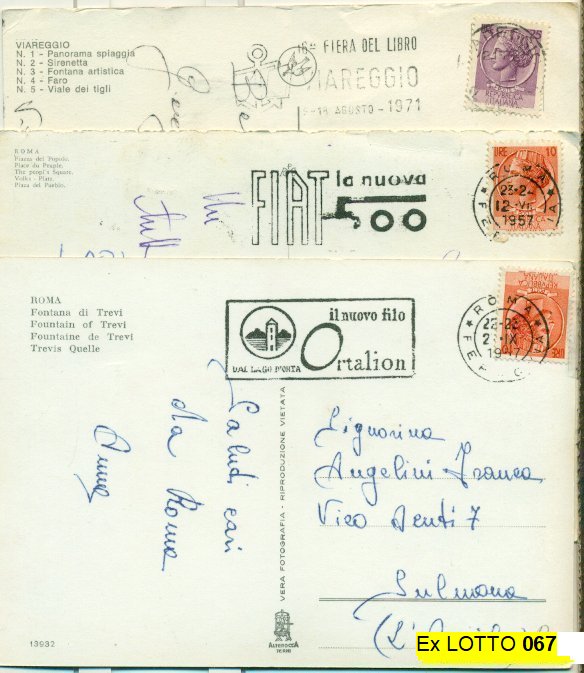 VIAREGGIO
N. 1 - Panorama spiaggia
N. 2 - Sirenetta
N. 3 - Fontana artistica
N. 4 - Faro
N. 5 - Viale dei tigli
FIERA DEL LIBRO
VIAREGGIO
AGOSTO - 1971
25
ITALIANA
ROMA
Piazza del Popolo.
Place du Peuple.
The peopl's Square.
Volks - Platz.
Plaza del Pueblo.
FIAT la nuova
500
LIRE 10
ROMA
23-24
12. VII
1957
FERROVIA
ROMA
Fontana di Trevi
Fountain of Trevi
Fountaine de Trevi
Trevis Quelle
DAL LAGO D'ORTA
il nuovo filo
Ortalion
ROMA
22-23
Saluti cari
da Roma
Anna
VERA FOTOGRAFIA - RIPRODUZIONE VIETATA
Signorina
Angelini Franca
Vico Venti 7
Sulmona
13932
ALTEROCCA
TERNI
Ex LOTTO 067